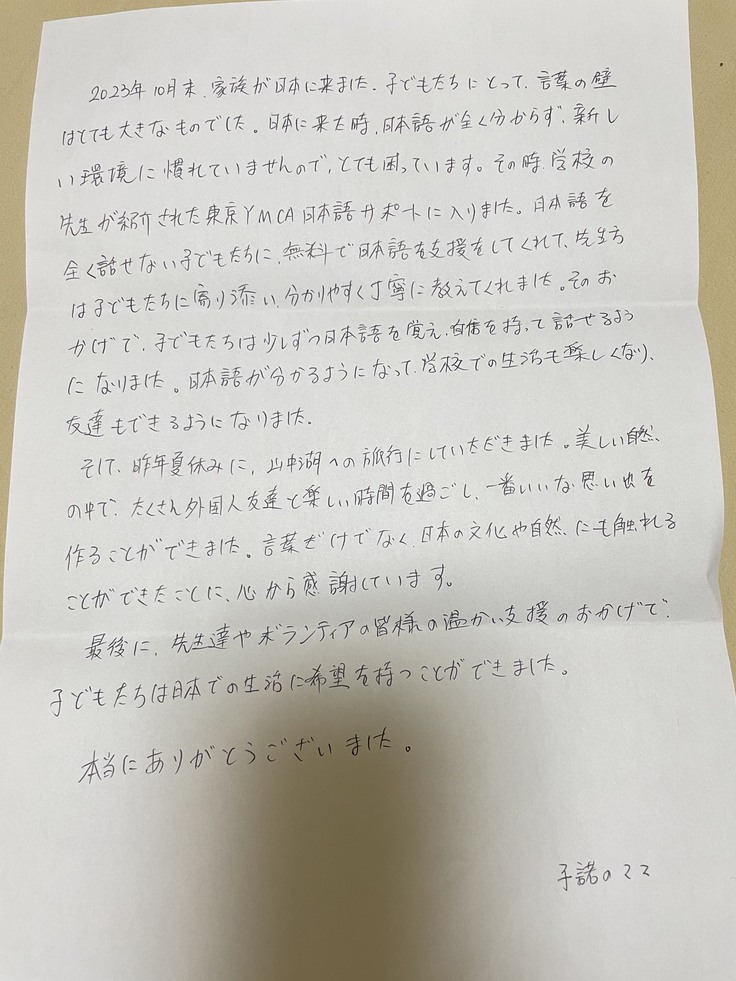 2023年10月末、家族が日本に来ました。子どもたちにとって、言葉の壁
はとても大きなものでした。日本に来た時、日本語が全く分からず、新し
い環境に慣れていませんので、とても困っています。その時、学校の
先生が紹介された東京YMCA日本語サポートに入りました。日本語を
全く話せない子どもたちに、無料で日本語を支援をしてくれて、先生方
は子どもたちに寄り添い、分かりやすく丁寧に教えてくれました。そのお
かげで、子どもたちは少しずつ日本語を覚え、自信を持って話せるよう
になりました。日本語が分かるようになって、学校での生活も楽しくなり、
友達もできるようになりました。
そして、昨年夏休みに、山中湖への旅行にしていただきました。美しい自然、
の中で、たくさん外国人友達と楽しい時間を過ごし、一番いいな思い出を
作ることができました。言葉だけでなく、日本の文化や自然にも触れる
ことができたことに、心から感謝しています。
最後に、先生達やボランティアの皆様の温かい支援のおかげで、
子どもたちは日本での生活に希望を持つことができました。
本当にありがとうございました。
子諾のママ